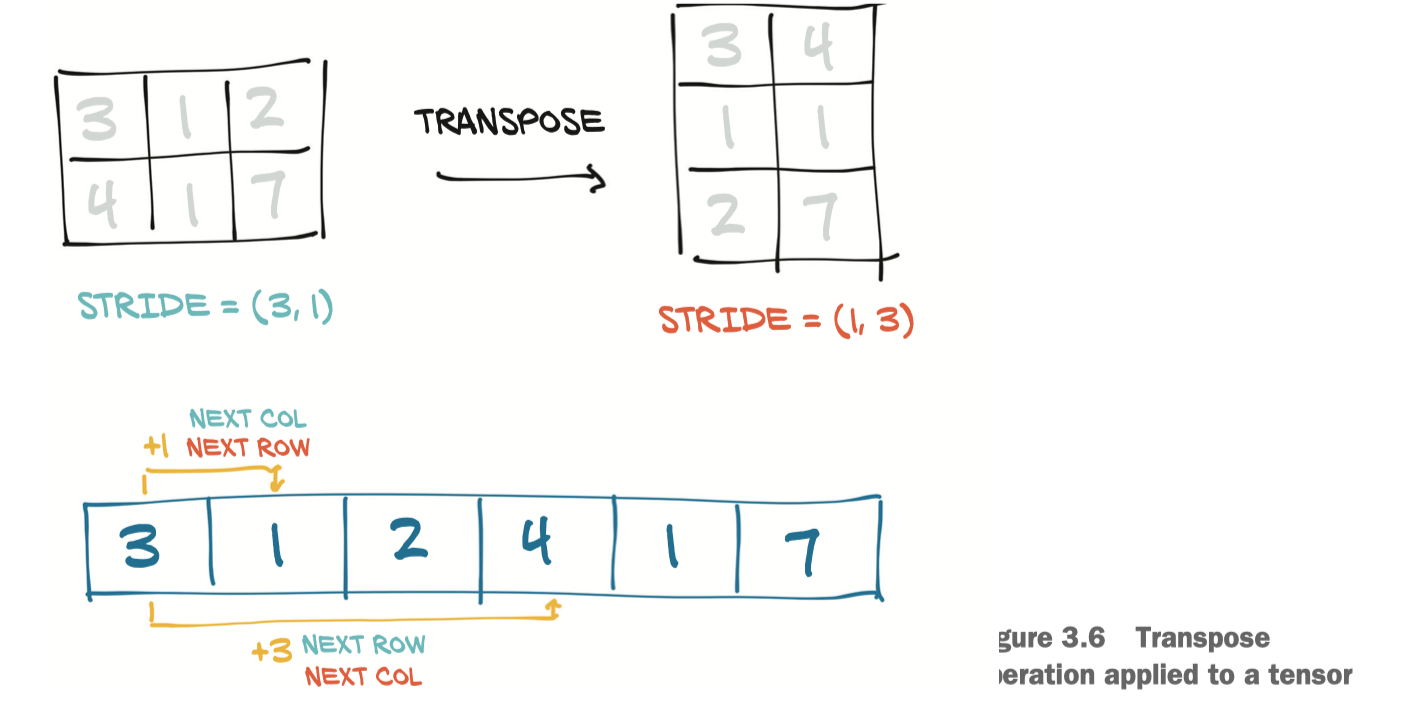 3 1 2
4 1 7
STRIDE = (3, 1)
TRANSPOSE
3 4
1 1
2 7
STRIDE = (1, 3)
NEXT COL
+1 NEXT ROW
3 1 2 4 1 7
+3 NEXT ROW
NEXT COL
gure 3.6 Transpose
eration applied to a tensor